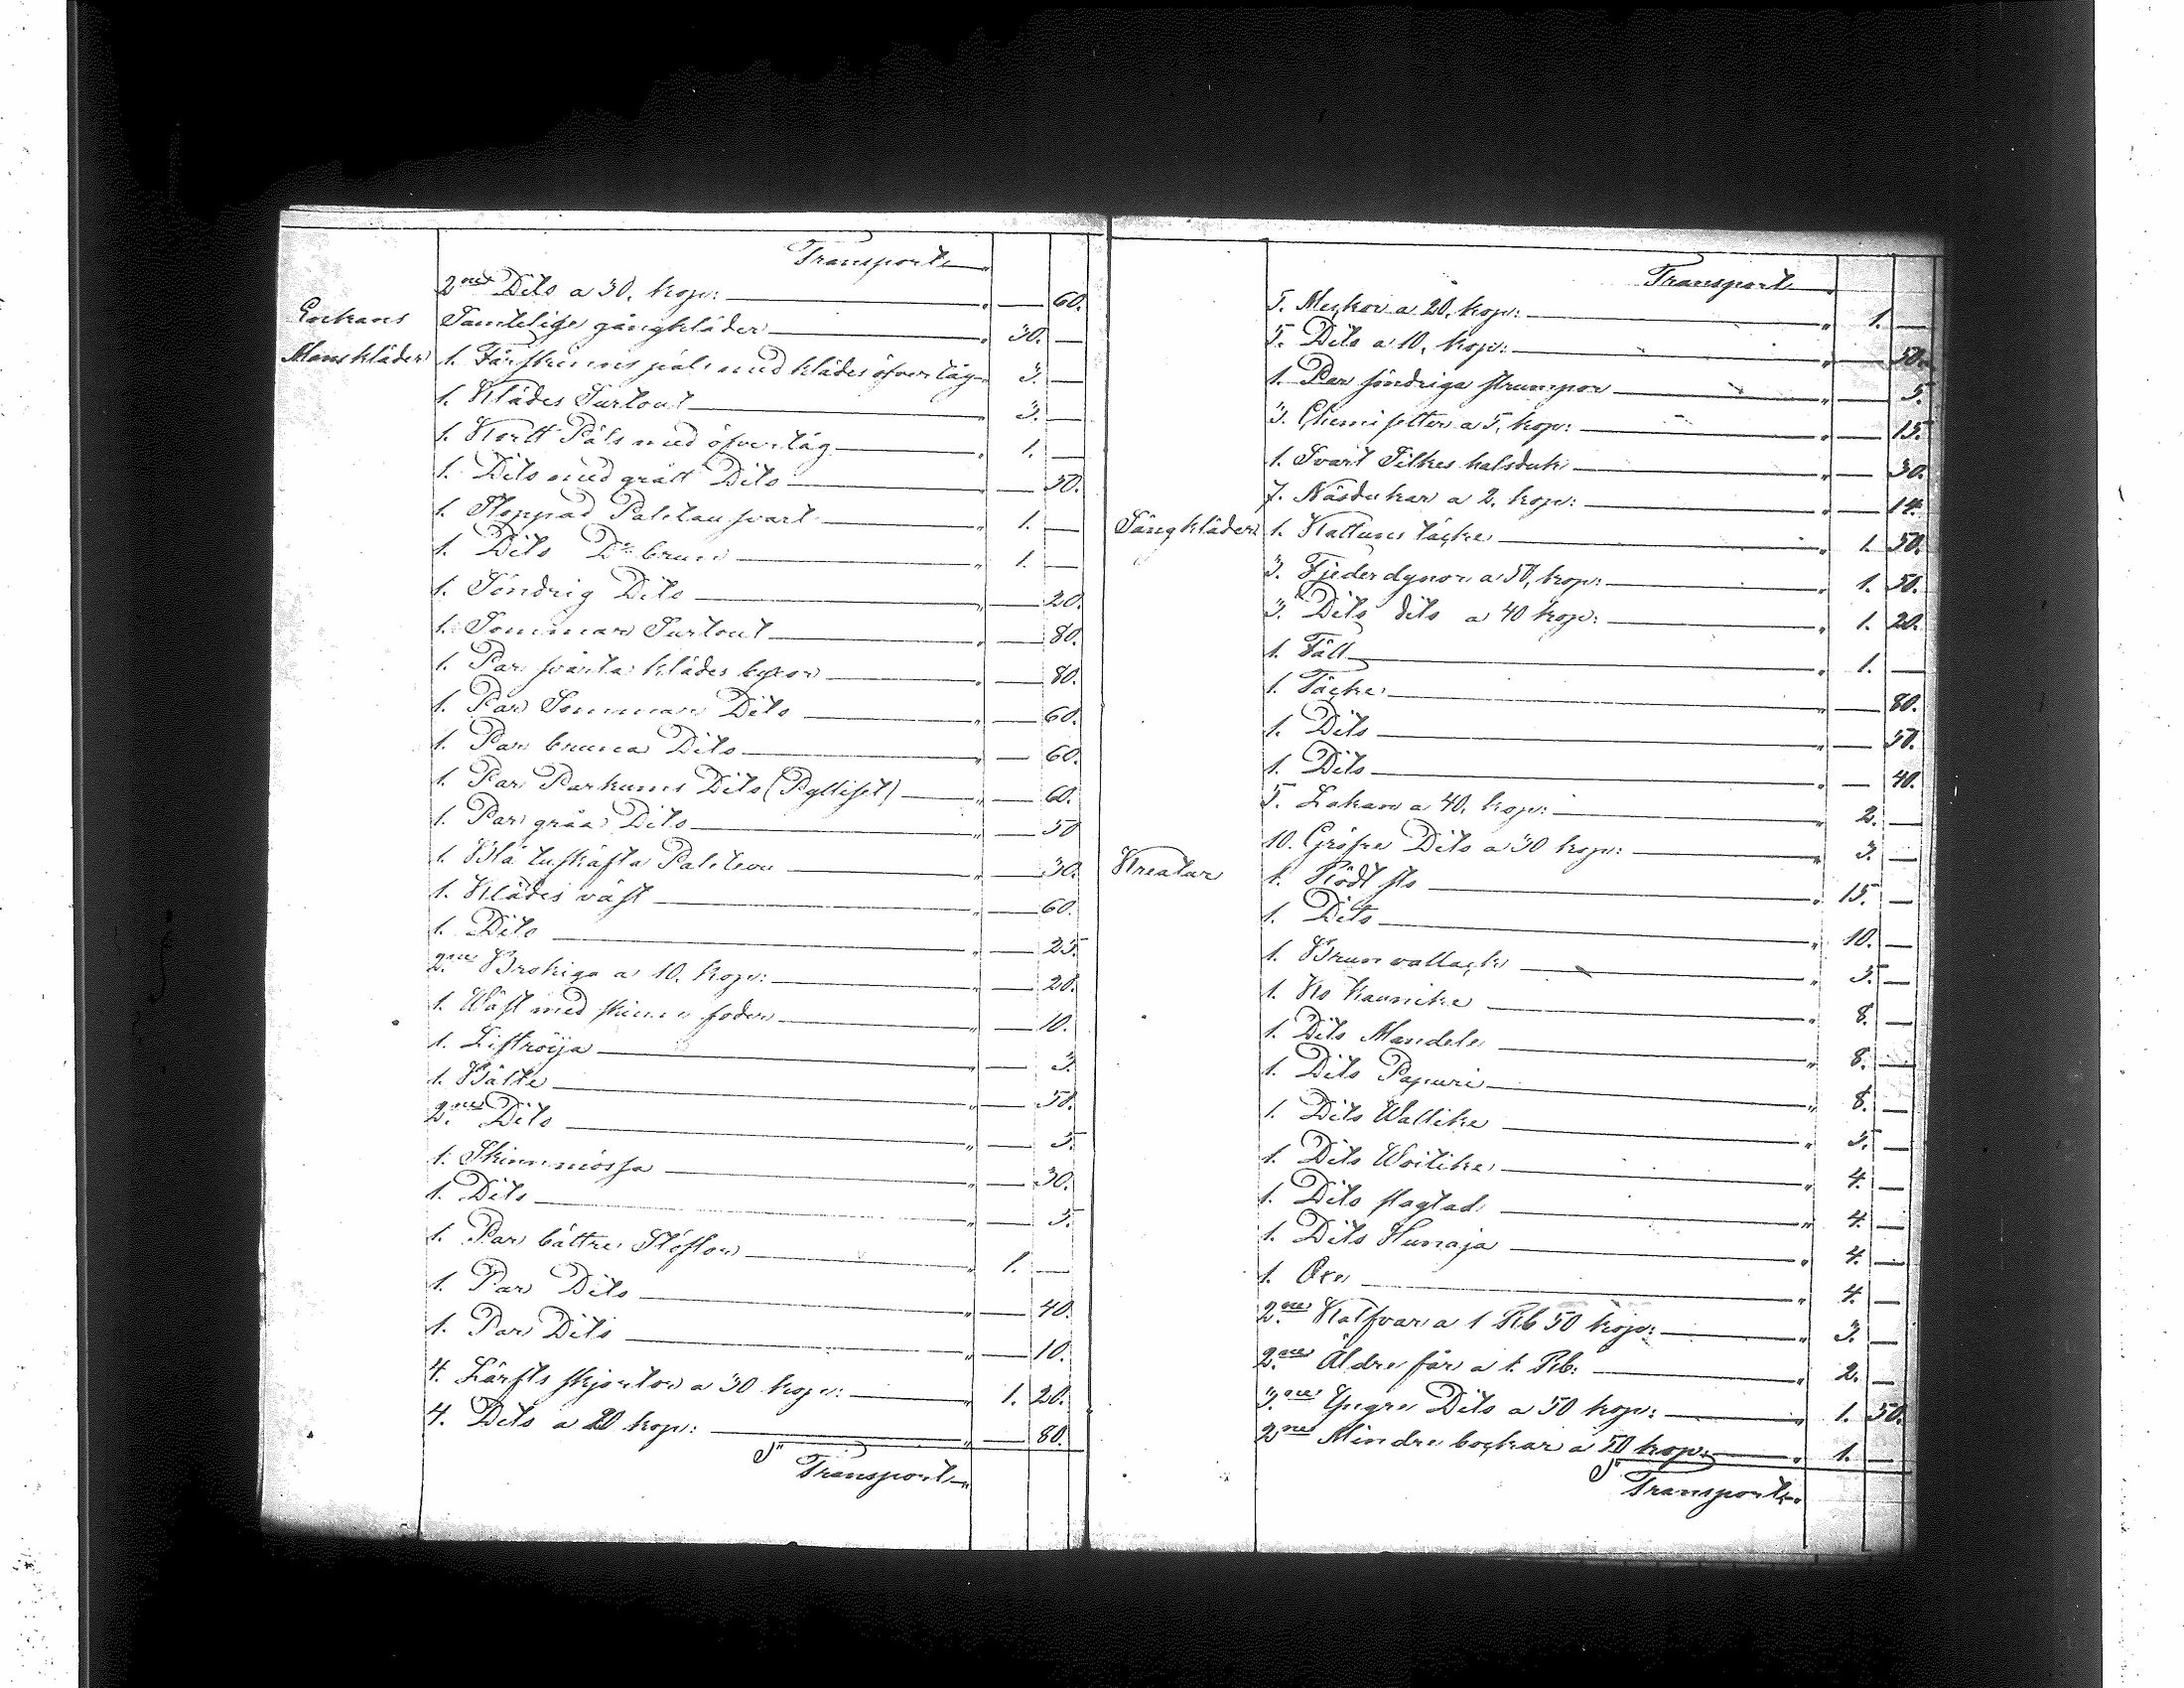 Transport
2ne Dito a 30. kop: " — 60.
Enkans Samtelige gångkläder " 30. —
Manskläder 1. Fårskinns päls med klädes öfvertåg " 3. —
1. Klädes Surtout " 3. —
1. Kortt Päls med öfvertåg " 1. —
1. Dito med grått Dito " — 50.
1. Stoppad Paletau svart " 1. —
1. Dito Do brun " 1. —
1. Söndrig Dito " — 20.
1. Sommar Surtout " — 80.
1. Par svarta klädes byxor " — 80.
1. Par Sommar Dito " — 60.
1. Par bruna Dito " — 60.
1. Par Parkums Dito (Pylliset) " — 60.
1. Par gråa Dito " — 50
1. Blå tuskafta Paletou " — 30.
1. Klädes väst " — 60.
1. Dito " — 25.
2ne Brokiga a 10. kop: " — 20.
1. Wäst med skinn foder " — 10.
1. Lifströija " — 3.
1. Bälte " — 50.
2ne Dito " — 5.
1. Skinnmössa " — 30.
1. Dito " — 5.
1. Par bättre Stöflor " 1. —
1. Par Dito " — 40.
1. Par Dito " — 10.
4. Lärfts skjortor a 30 kop: " 1. 20.
4. Dito a 20 kop: " — 80.
Transport "
Transport "
5. Myckor a 20. kop: " 1. —
5. Dito a 10. kop: " — 50.
1. Par söndriga strumpor " — 5.
3. Chemisetter a 5. kop: " — 15.
1. Svart Silkes halsduk " — 30.
7. Näsdukar a 2. kop: " — 14.
Sängkläder 1. Kattuns täcke " 1. 50.
3. Fjederdynor a 50. kop: " 1. 50.
3. Dito dito a 40 kop: " 1. 20.
1. Fäll " 1. —
1. Täcke " — 80.
1. Dito " — 50.
1. Dito " — 40.
5. Lakan a 40. kop: " 2. —
10. Gröfre Dito a 30 kop: " 3. —
Kreatur 1. Rödt sto " 15. —
1. Dito " 10. —
1. Brun vallack " 5. —
1. Ko Kaunike " 8. —
1. Dito Mandele " 8. —
1. Dito Papuri " 8. —
1. Dito Wallike " 5. —
1. Dito Woitike " 4. —
1. Dito slagtad " 4. —
1. Dito Hunaja " 4. —
1. Oxe " 4. —
2ne Kalfvar a 1 Rb 50 kop: " 3. —
2ne Äldre får a 1. Rb: " 2. —
3ne Yngre Dito a 50 kop: " 1. 50.
2ne Mindre bockar a 50 kop: " 1. —
Transport "